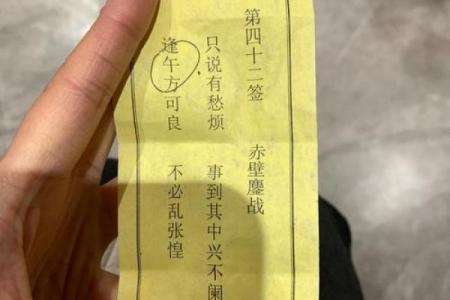 第四十二签　赤壁鏖战
只说有愁烦　事到其中兴不阑
逢午方可良　不必乱张惶